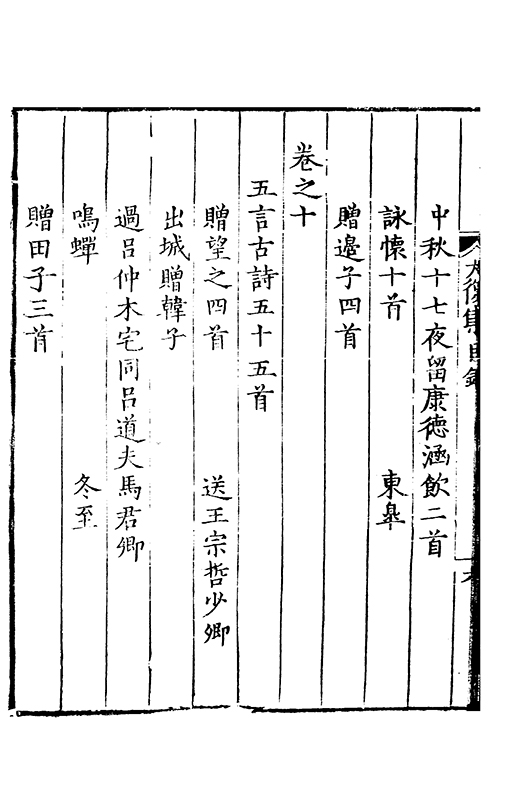 大復集目錄
中秋十七夜留康德涵飲二首
詠懷十首 東皐
贈邉子四首
卷之十
五言古詩五十五首
贈望之四首 送王宗哲少卿
出城贈韓子
過呂仲木宅同呂道夫馬君卿
鳴蟬 冬至
贈田子三首